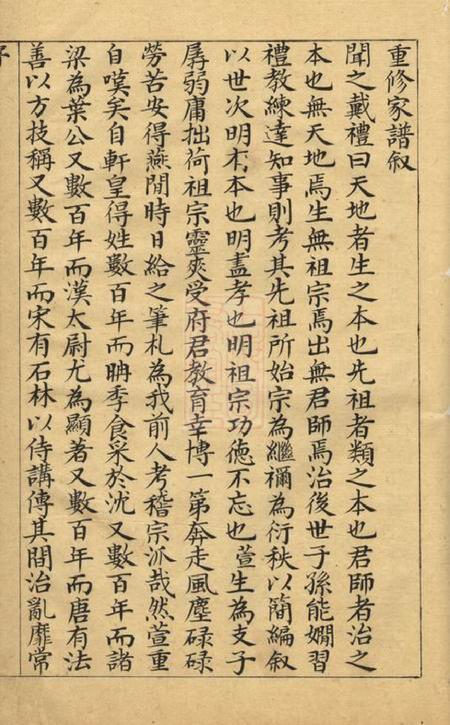 重修家譜叙
聞之戴禮曰天地者生之本也先祖者類之本也君師者治之
本也無天地焉生無祖宗焉出無君師焉治後世子孫能嫺習
禮教練達知事則考其先祖所始宗為繼禰為衍秩以簡編叙
以世次明本本也明盡孝也明祖宗功德不忘也萱生為支子
孱弱庸拙荷祖宗靈爽受府君教育幸博一第奔走風塵碌碌
勞苦安得燕閒時日給之筆札為我前人考稽宗派哉然萱重
自嘆矣自軒皇得姓數百年而聃季食采於沈又數百年而諸
梁為葉公又數百年而漢太尉尤為顯著又數百年而唐有法
善以方技稱又數百年而宋有石林以侍講傳其間治亂靡常